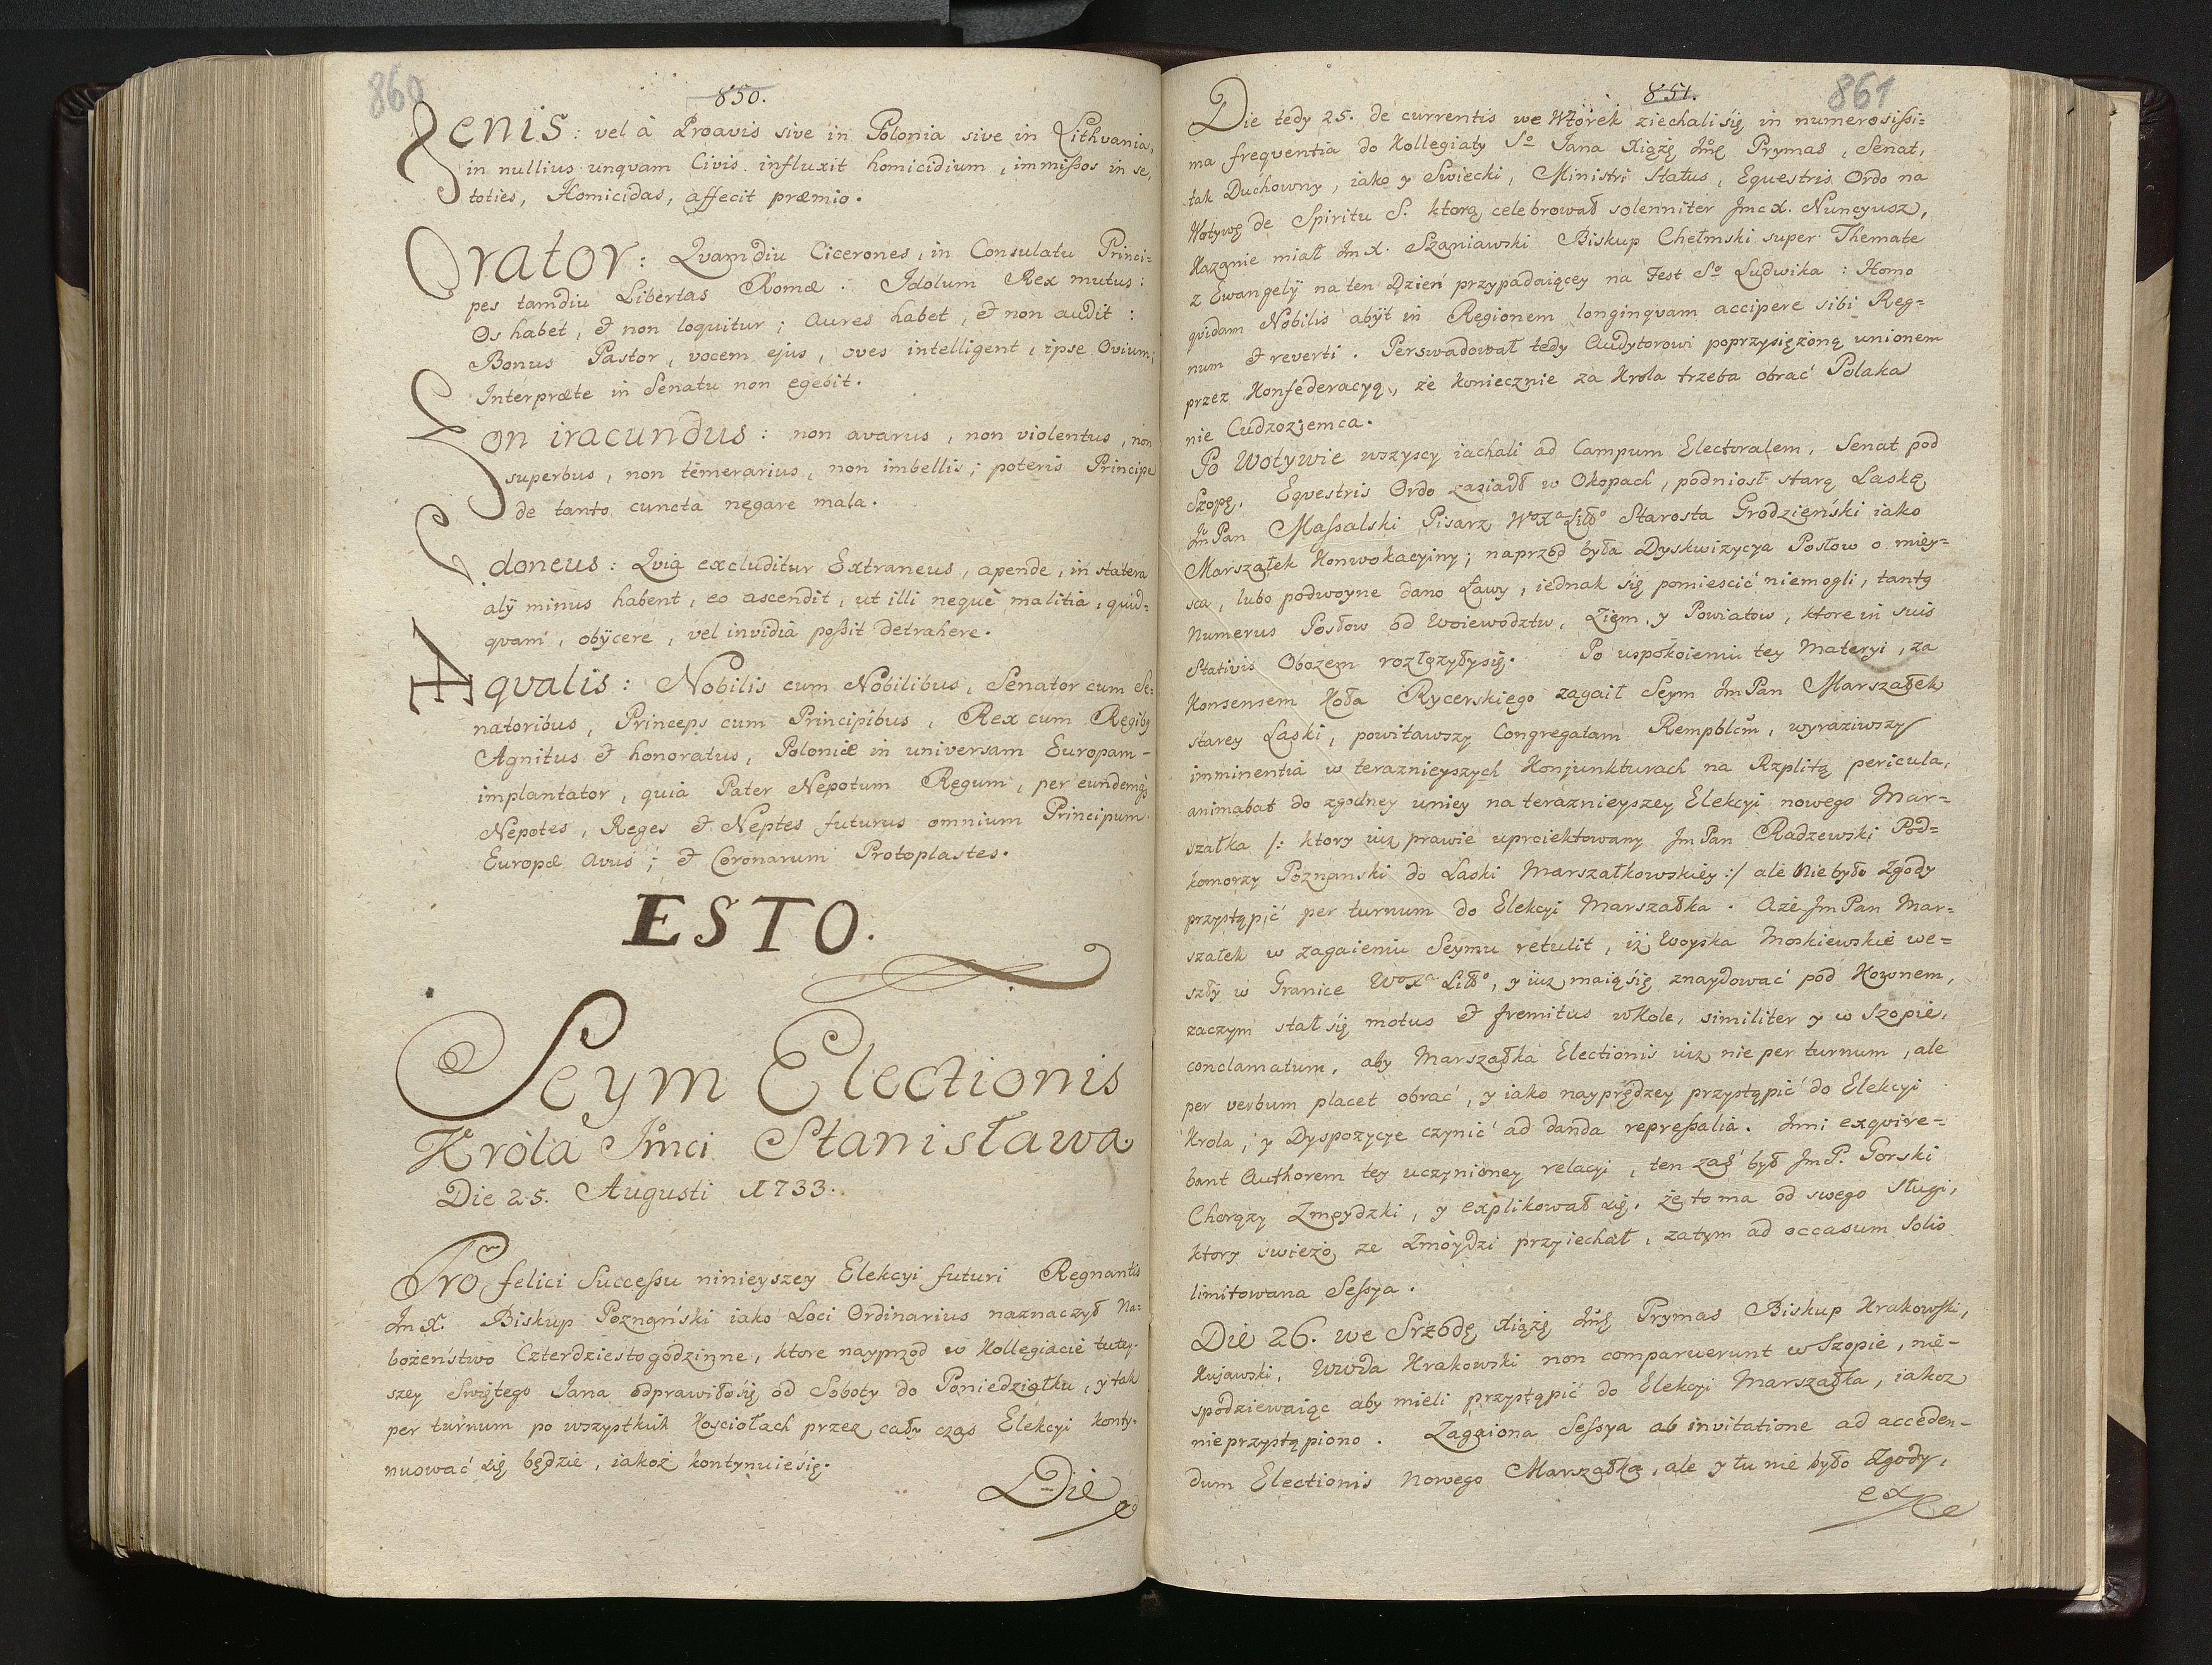 860
850.
Senis: vel à Proavis sive in Polonia sive in Lithvania,
in nullius unqvam Civis influxit homicidium, immißos in se,
toties, Homicidas, affecit præmio.
Orator: Qvamdiu Cicerones, in Consulatu Princi=
pes tamdiu Libertas Romæ. Idolum Rex mutus:
Os habet, & non loquitur; aures habet, & non audit:
Bonus Pastor, vocem ejus, oves intelligent, ipse Ovium,
Interpræte in Senatu non egebit.
on iracundus: non avarus, non violentus, non
superbus, non temerarius, non imbellis; poteris Principe
de tanto cuncta negare mala.
Idoneus: Qvia excluditur Extraneus, apende, in statera
alÿ minus habent, eo ascendit, ut illi neque malitia, quid=
qvam, obÿcere, vel invidia poßit detrahere.
Æqvalis: Nobilis cum Nobilibus, Senator cum Se=
natoribus, Princeps cum Principibus, Rex cum Regibg
Agnitus & honoratus, Poloniæ in universam Europam-
implantator, quia Pater Nepotum Regum, per eundemqz
Nepotes, Reges & Neptes futurus omnium Principum
Europæ avus; & Coronarum Protoplastes.
ESTO.
Seym Electionis
Króla Jmci Stanisława
Die 25. Augusti 1733.
Pro felici Succeßu ninieyszey Elekcyi futuri Regnantis
Jm X. Biskup Poznański iako Loci Ordinarius naznaczył Na=
bożeństwo Czterdziestogodzinne, ktore nayprzod w Kollegiacie tutey=
szey Swiętego Jana odprawiłosię od Soboty do Poniedziałku, y tak
per turnum po wszystkich Kosciołach przez cały czas Elekcyi konty=
nuować się będzie, iakoż kontynuiesię.
Die
861
851.
Die tedy 25. de currentis we Wtorek ziechali się in numerosißi=
ma freqventia do Kollegiaty So Jana Xiążę Jmę Prymas, Senat,
tak Duchowny, iako y Swiecki, Ministri Status, Eqvestris Ordo na
Wotywę de Spiritu S. ktorą celebrował solenniter Jmc X. Nuncyusz,
Kazanie miał Jm X. Szaniawski Biskup Chełmski super Themate
z Ewangelÿ na ten Dzień przypadaiącey na Fest So Ludwika: Homo
qvidam Nobilis abÿt in Regionem longinqvam accipere sibi Reg=
num & reverti. Perswadował tedy Audytorowi poprzysiężoną unionem
przez Konfederacyą, że koniecznie za Krola trzeba obrać Polaka
nie Cudzoziemca.
Po Wotywie wszyscy iachali ad Campum Electoralem, Senat pod
Szopę, Eqvestris Ordo zasiadł w Okopach, podniosł starą Laskę
Jm Pan Maßalski Pisarz WoXa Litto Starosta Grodzieński iako
Marszałek Konwokacyiny; naprzod była Dyskwizycya Posłow o miey=
sca, lubo podwoyne dano Ławy, iednak się pomiescić niemogli, tantg
Numerus Posłow od Woiewodztw, Ziem, y Powiatow, ktore in suis
Stativis Obozem rozłozyłysię. Po uspokoieniu tey Materyi, za
Konsensem Koła Rycerskiego zagaił Seym Jm Pan Marszałek
starey Laski, powitawszy Congregatam Rempblcm, wyraziwszy
imminentia w teraznieyszych Konjunkturach na Rzplitą pericula,
animabat do zgodney uniey na teraznieyszey Elekcyi nowego Mar=
szałka /: ktory iuz prawie uproiektowany Jm Pan Radzewski Pod=
komorzy Poznanski do Laski Marszałkowskiey :/ ale niebyło zgody
przystąpić per turnum do Elekcyi Marszałka. Aże Jm Pan Mar=
szałek w zagaieniu Seymu retulit, iż Woyska Moskiewskie we=
szły w Granice WoXa Litto, y iuz maią się znaydować pod Kownem,
zaczym stał się motus & fremitus w Kole, similiter y w Szopie,
conclamatum, aby Marszałka Electionis iuz nie per turnum, ale
per verbum placet obrać, y iako nayprędzey przystąpić do Elekcyi
Krola, y Dyspozycye czynić ad danda repreßalia. Inni exqvire=
bant Authorem tey uczynioney relacyi, ten zaś był Jm P. Gorski
Chorązy Zmoydzki, y explikował się, że to ma od swego sługi,
ktory swieżo ze Zmoydzi przyiechał, zatym ad occasum Solis
limitowana Seßya.
Die 26. we Srzodę Xiążę Jmę Prymas Biskup Krakowski,
Kujawski, Wwda Krakowski non comparuerunt w Szopie, nie=
spodziewaiąc aby mieli przystąpić do Elekcyi Marszałka, iakoz
nieprzystąpiono. Zagaiona Seßya ab invitatione ad acceden=
dum Electionis nowego Marszałka, ale y tu nie było Zgody,
ex